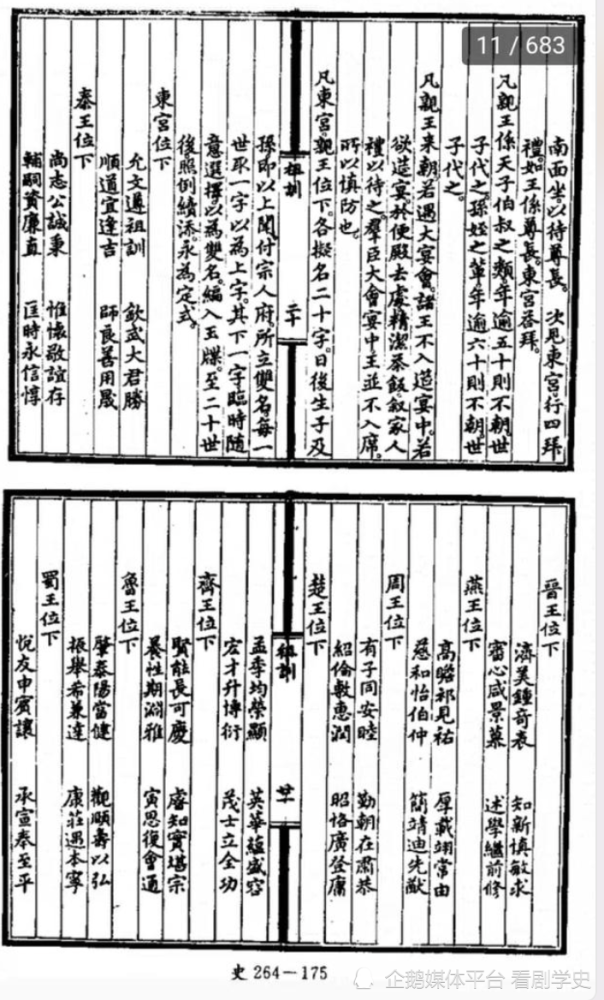 11 / 683
南面坐。以待尊長。次見東宮。行四拜
禮。如王係尊長。東宮荅拜。
凡親王係天子伯叔之類年逾五十則不朝世
子代之。孫姪之輩。年逾六十則不朝世
子代之。
凡親王来朝若遇大宴會。諸王不入筵宴中。若
欲筵宴。於便殿去處精潔茶飯。叙家人
禮以待之。羣臣大會宴中王並不入席。
所以慎防也。
凡東宮。親王位下。各擬名二十字。日後生子及
祖訓 二十
孫即以上聞付宗人府。所立雙名。每一
世取一字以為上字。其下一字臨時隨
意選擇。以為雙名。編入玉牒。至二十世
後照例續添。永為定式。
東宮位下
允文遵祖訓 欽武大君勝
順道宜逵吉 師良善用晟
秦王位下
尚志公誠秉 惟懷敬誼存
輔嗣資廉直 匡時永信惇
晉王位下
濟美鍾奇表 知新慎敏求
審心咸景慕 述學繼前修
燕王位下
高瞻祁見祐 厚載翊常由
慈和怡伯仲 簡靖迪先猷
周王位下
有子同安睦 勤朝在肅恭
紹倫敷惠潤 昭恪廣登庸
楚王位下
祖訓 廿一
孟季均榮顯 英華蘊盛容
宏才升博衍 茂士立全功
齊王位下
賢能長可慶 睿知實堪宗
養性期淵雅 寅思復會通
魯王位下
肇泰陽當健 觀頤壽以弘
振舉希兼達 康莊遇本寧
蜀王位下
悅友申賓讓 承宣奉至平
史 264－175
企鹅媒体平台 看剧学史